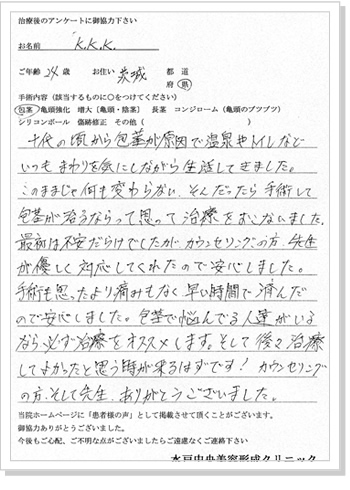 治療後のアンケートに御協力下さい
お名前 K.K.K.
ご年齢 24 歳 お住い 茨城 都 道 府 県
手術内容（該当するものに○をつけてください）
包茎 亀頭強化 増大（亀頭・陰茎） 長茎 コンジローム（亀頭のブツブツ）
シリコンボール 傷跡修正 その他（ ）
十代の頃から包茎が原因で温泉やトイレなど
いつもまわりを気にしながら生活してきました。
このままじゃ何も変わらない、そんだったら手術して
包茎が治るならって思って治療をおこないました。
最初は不安だらけでしたがカウンセリングの方、先生
が優しく対応してくれたので安心しました。
手術も思ったより痛みもなく早い時間で済んだ
ので安心しました。包茎で悩んでる人達がいる
なら必ず治療をオススメします。そして後々治療
してよかったと思う時が来るはずです！カウンセリング
の方、そして先生、ありがとうございました。
当院ホームページに「患者様の声」として掲載させて頂くことがございます。
御協力ありがとうございました。
今後もご心配、ご不明な点がございましたらご遠慮なくご連絡下さい
水戸中央美容形成クリニック